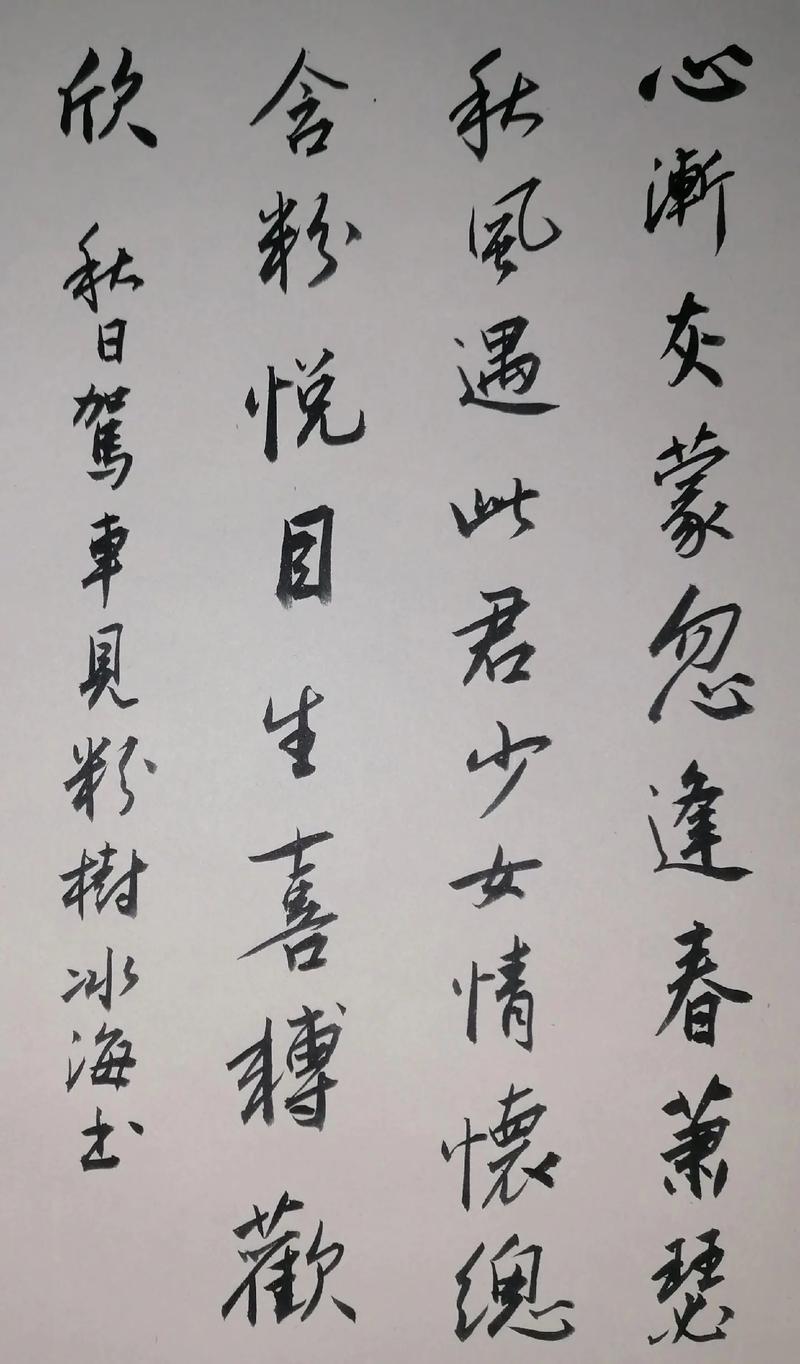 心漸灰蒙忽逢春蕭瑟
秋風遇此君少女情懷總
含粉悅目生喜轉歡
欣 秋日駕車見粉樹冰海书